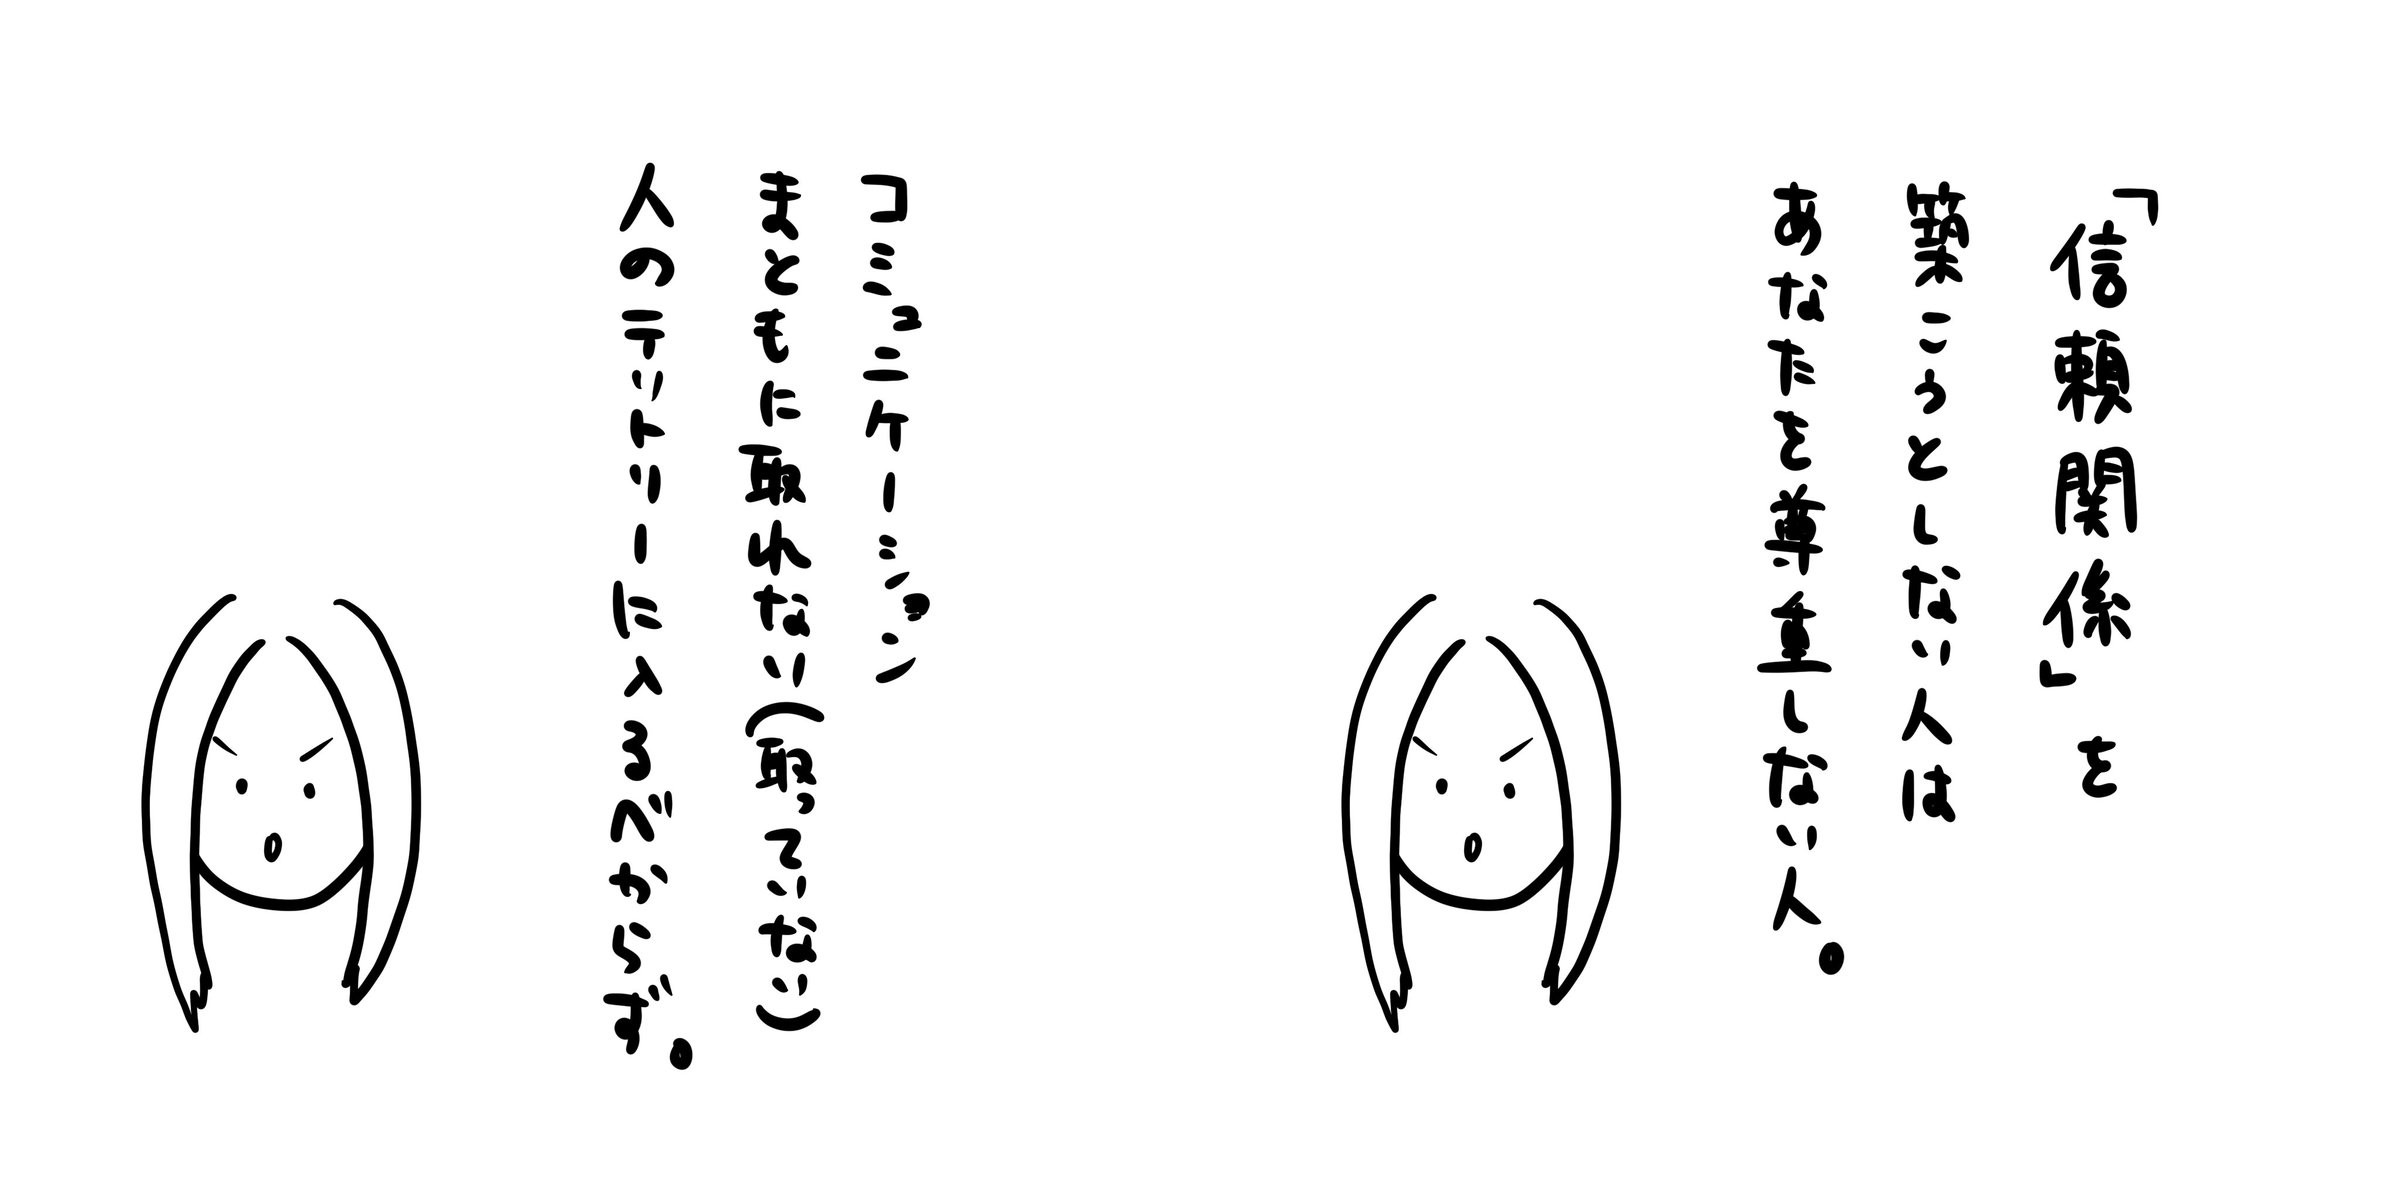 「信頼関係」を
築こうとしない人は
あなたを尊重しない人。
コミュニケーション
まともに取れない(取っていない)
人のテリトリーに入るべからず。